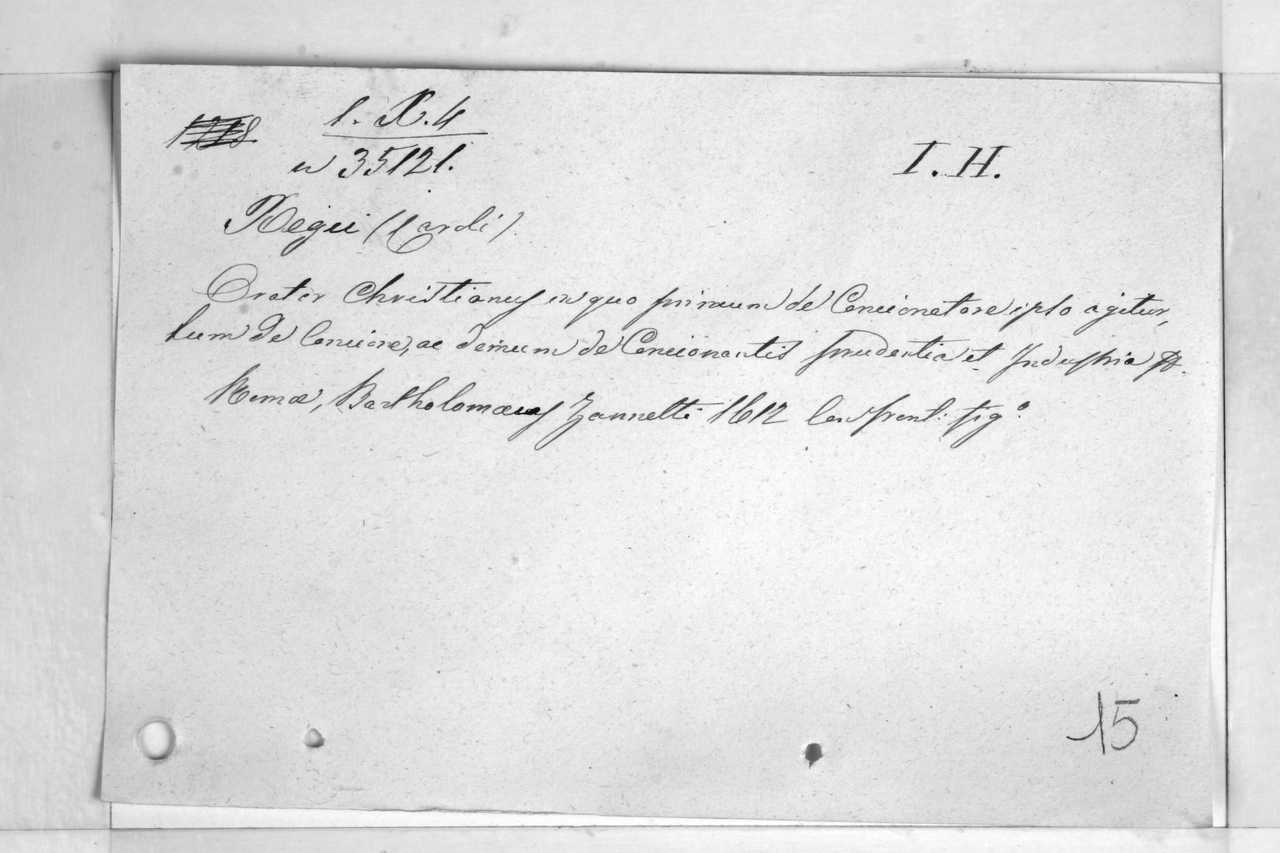 1. X. 4
I. H.
35121.
Regii (Caroli).
Orator Christianus in quo primum de Concionatore ipso agitur,
tum de Concione, ac demum de Concionantis prudentia et Industria
Romæ, Bartholomæus Zannetti 1612 con front: figº
15